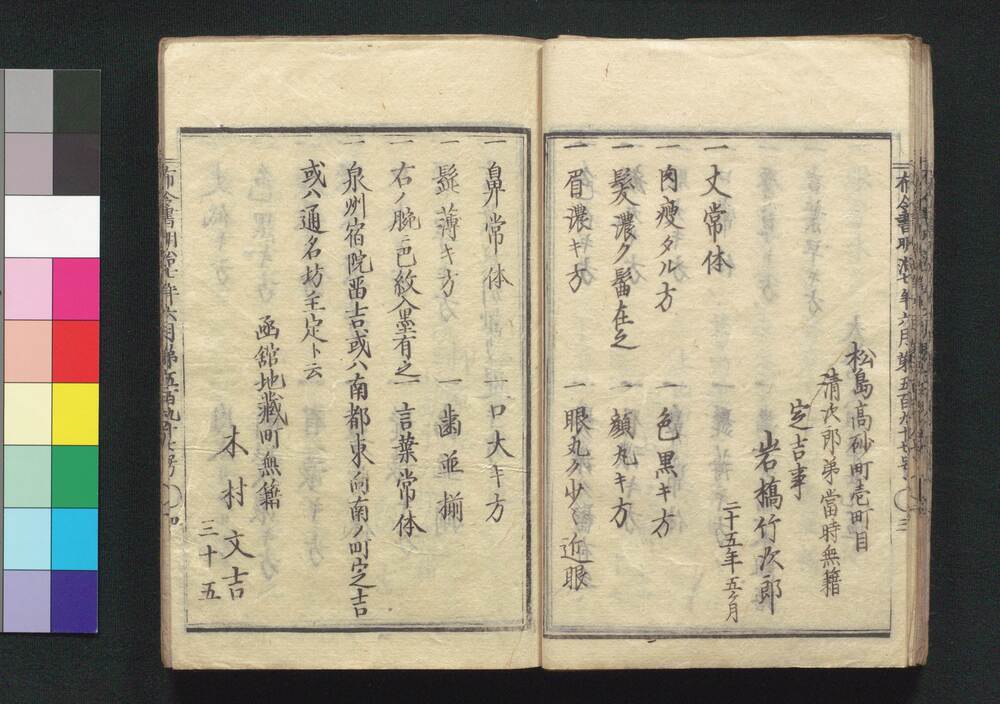 布令書明治七年六月第五百九十七号 三
松島高砂町壱町目
清次郎弟當時無籍
定吉事
岩橋竹次郎
二十五年五ヶ月
一丈常体
一肉瘦タル方 一色黒キ方
一髪濃ク髷在之 一顔丸キ方
一眉濃キ方 一眼丸ク少シ近眼
一鼻常体 一口大キ方
一髭薄キ方 一歯並揃
一右ノ腕ニ巴紋入墨有之 一言葉常体
一泉州宿院畄吉或ハ南都東向南ノ町定吉
或ハ通名坊主定ト云
函舘地藏町無籍
木村文吉
三十五
布令書明治七年六月第五百九十七号 四